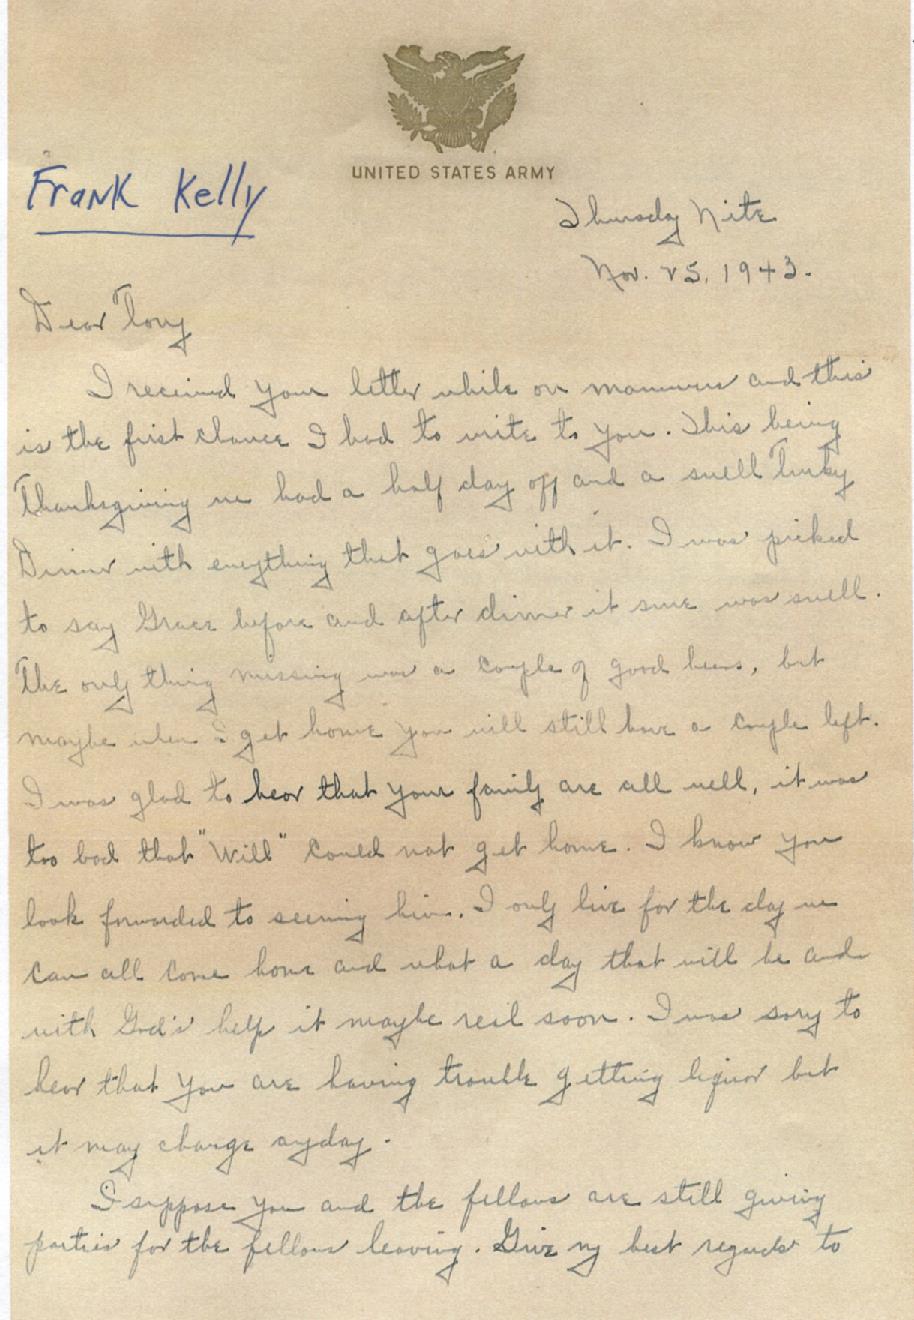 UNITED STATES ARMY
Frank Kelly
Thursday Nite
Nov. 25, 1943.
Dear Tony
I received your letter while on manuvers and this
is the first chance I had to write to you. This being
Thanksgiving we had a half day off and a swell Turky
Dinner with everything that goes with it. I was picked
to say Grace before and after dinner it sure was swell.
The only thing missing was a couple of good beers, but
maybe when I get home you will still have a couple left.
I was glad to hear that your family are all well, it was
too bad that "Will" could not get home. I know you
look forwarded to seening him. I only live for the day we
can all come home and what a day that will be and
with God's help it maybe real soon. I was sorry to
hear that you are having trouble getting liquor but
it may change anyday.
I suppose you and the fellows are still giving
parties for the fellows leaving. Give my best regards to